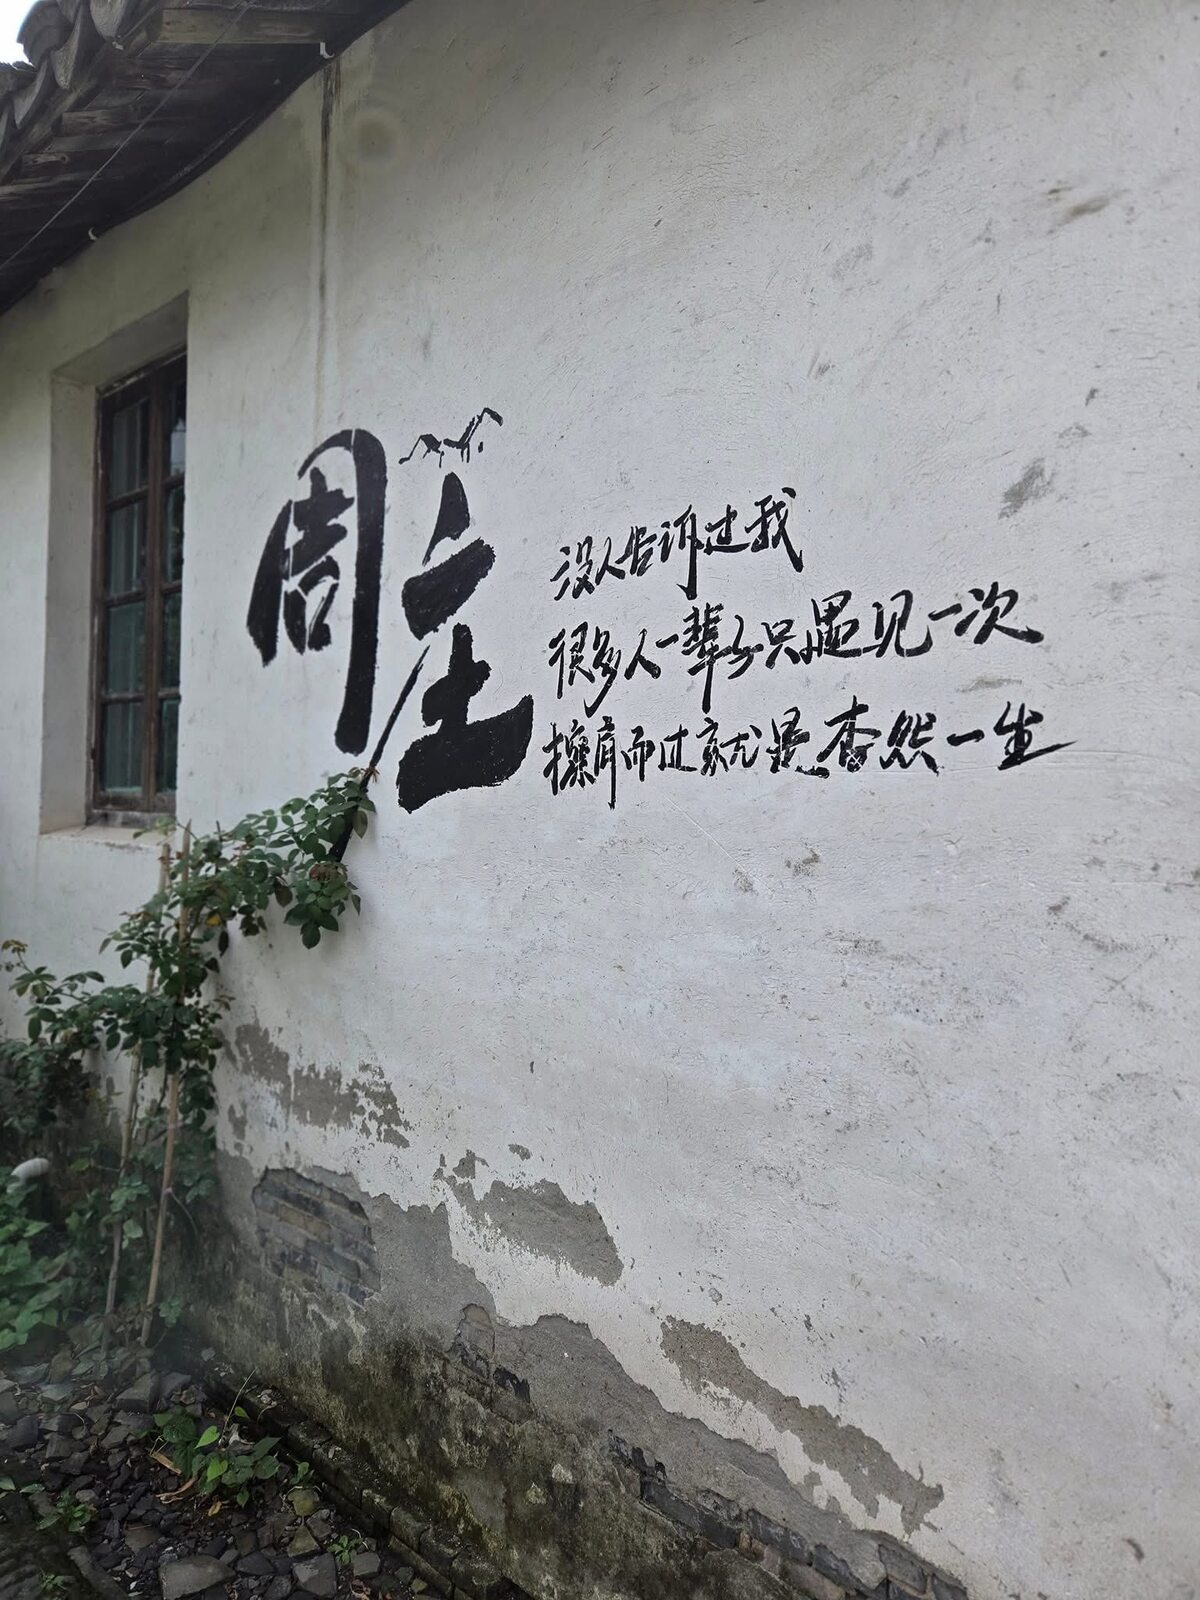 周庄
没人告诉过我
很多人一辈子只遇见一次
擦肩而过就是杳然一生